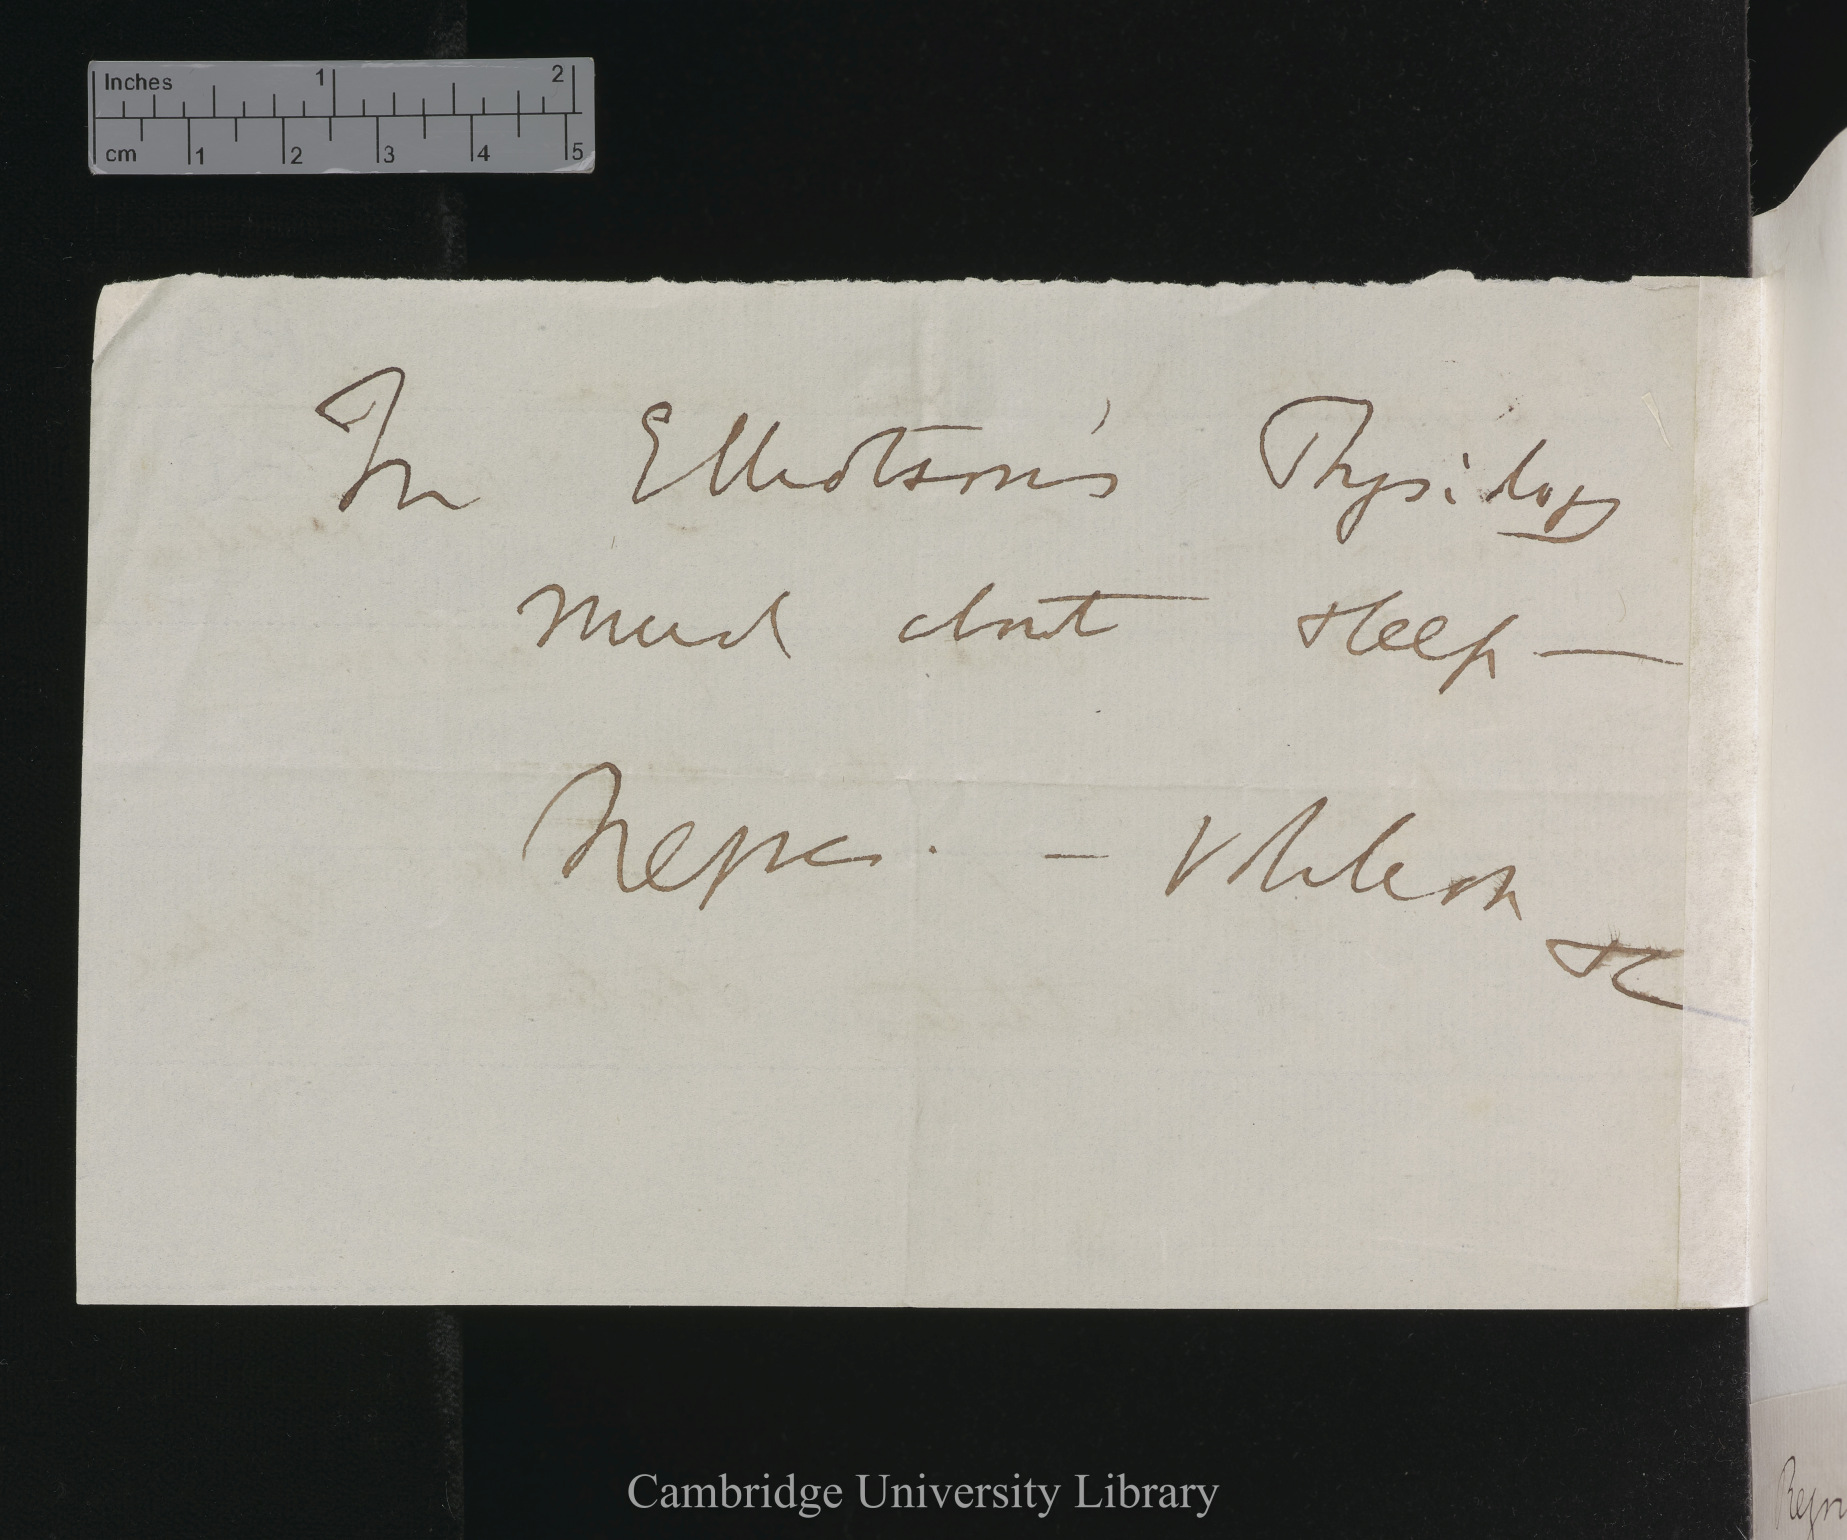 Inches 1 2
cm 1 2 3 4 5
In Elliotson's Physiology
much about Sleep —
— Volition
&c
Cambridge University Library